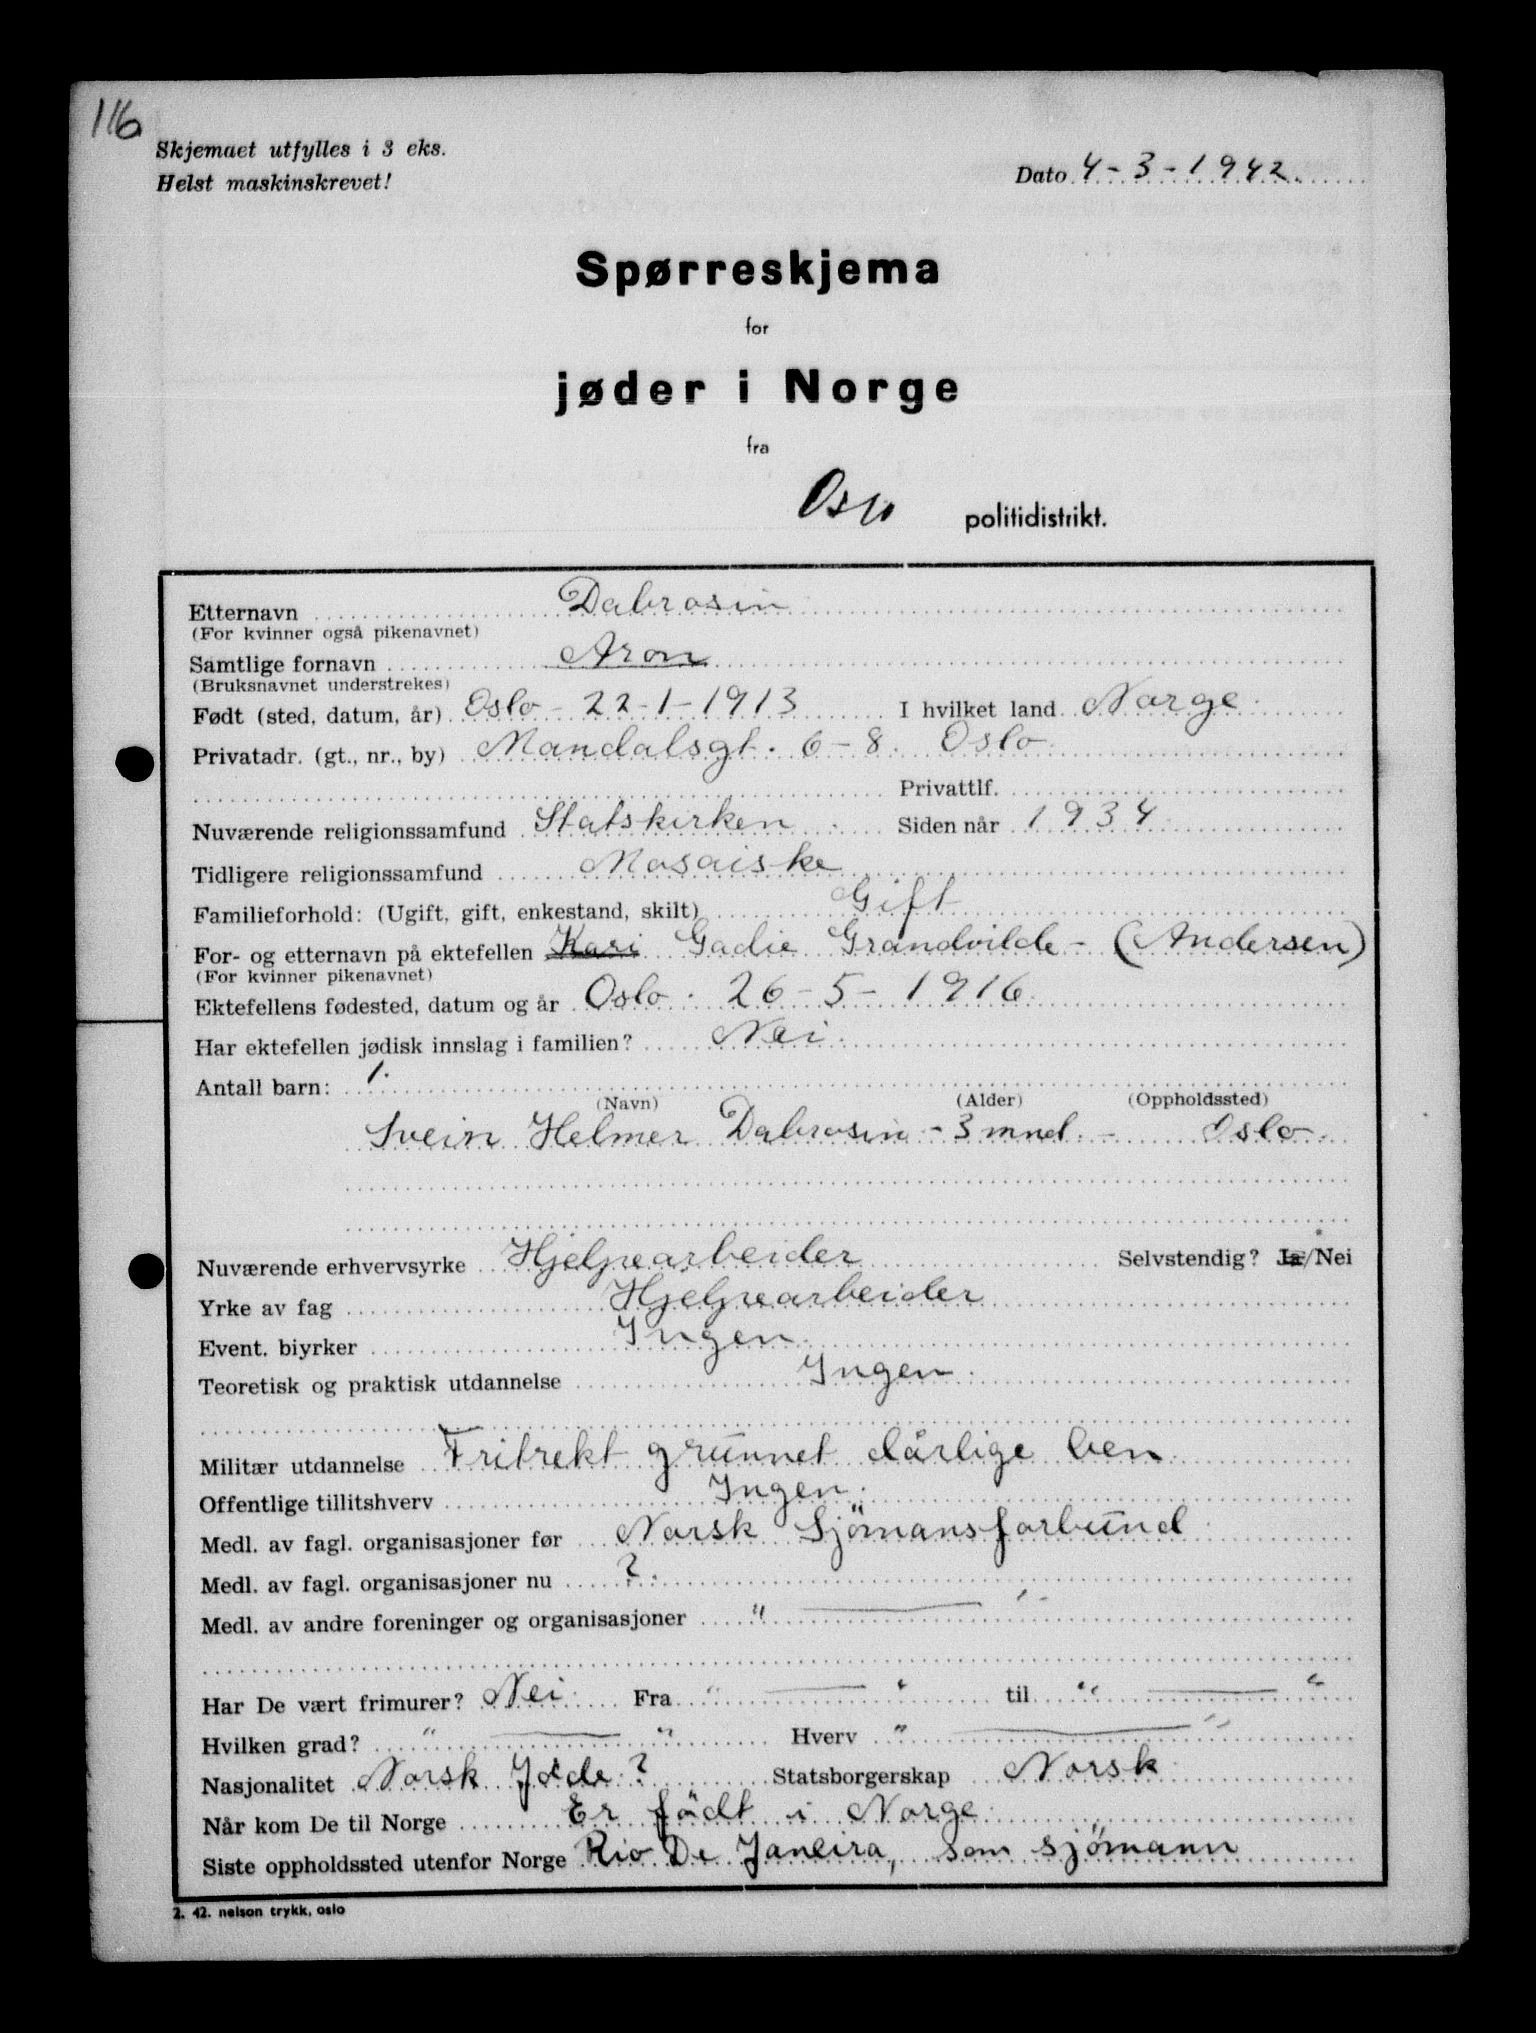 116
Skjemaet utfylles i 3 eks.
Helst maskinskrevet!
Dato 4-3-1942.
Spørreskjema
for
jøder i Norge
fra
Oslo politidistrikt.
Etternavn Dabrosin
(For kvinner også pikenavnet)
Samtlige fornavn Aron
(Bruksnavnet understrekes)
Født (sted, datum, år) Oslo - 22-1-1913 I hvilket land Norge.
Privatadr. (gt., nr., by) Mandalsgt. 6-8. Oslo.
Privattlf.
Nuværende religionssamfund Statskirken. Siden når 1934
Tidligere religionssamfund Mosaiske
Familieforhold: (Ugift, gift, enkestand, skilt) Gift
For- og etternavn på ektefellen Kari Gadie Grandvilde - (Andersen)
(For kvinner pikenavnet)
Ektefellens fødested, datum og år Oslo. 26-5-1916.
Har ektefellen jødisk innslag i familien? Nei.
Antall barn: 1.
(Navn) (Alder) (Oppholdssted)
Svein Helmer Dabrosin - 3 mnd. - Oslo.
Nuværende erhvervsyrke Hjelpearbeider Selvstendig? Ja/Nei
Yrke av fag Hjelpearbeider
Event. biyrker Ingen.
Teoretisk og praktisk utdannelse Ingen.
Militær utdannelse Fritrekt grunnet dårlige ben
Offentlige tillitshverv Ingen.
Medl. av fagl. organisasjoner før Norsk Sjömansforbund
Medl. av fagl. organisasjoner nu ?.
Medl. av andre foreninger og organisasjoner " — "
Har De vært frimurer? Nei. Fra " — " til " — "
Hvilken grad? " — " Hverv " — "
Nasjonalitet Norsk Jøde? Statsborgerskap Norsk
Når kom De til Norge Er födt i Norge.
Siste oppholdssted utenfor Norge Rio De Janeira, som sjömann
2. 42. nelson trykk, oslo